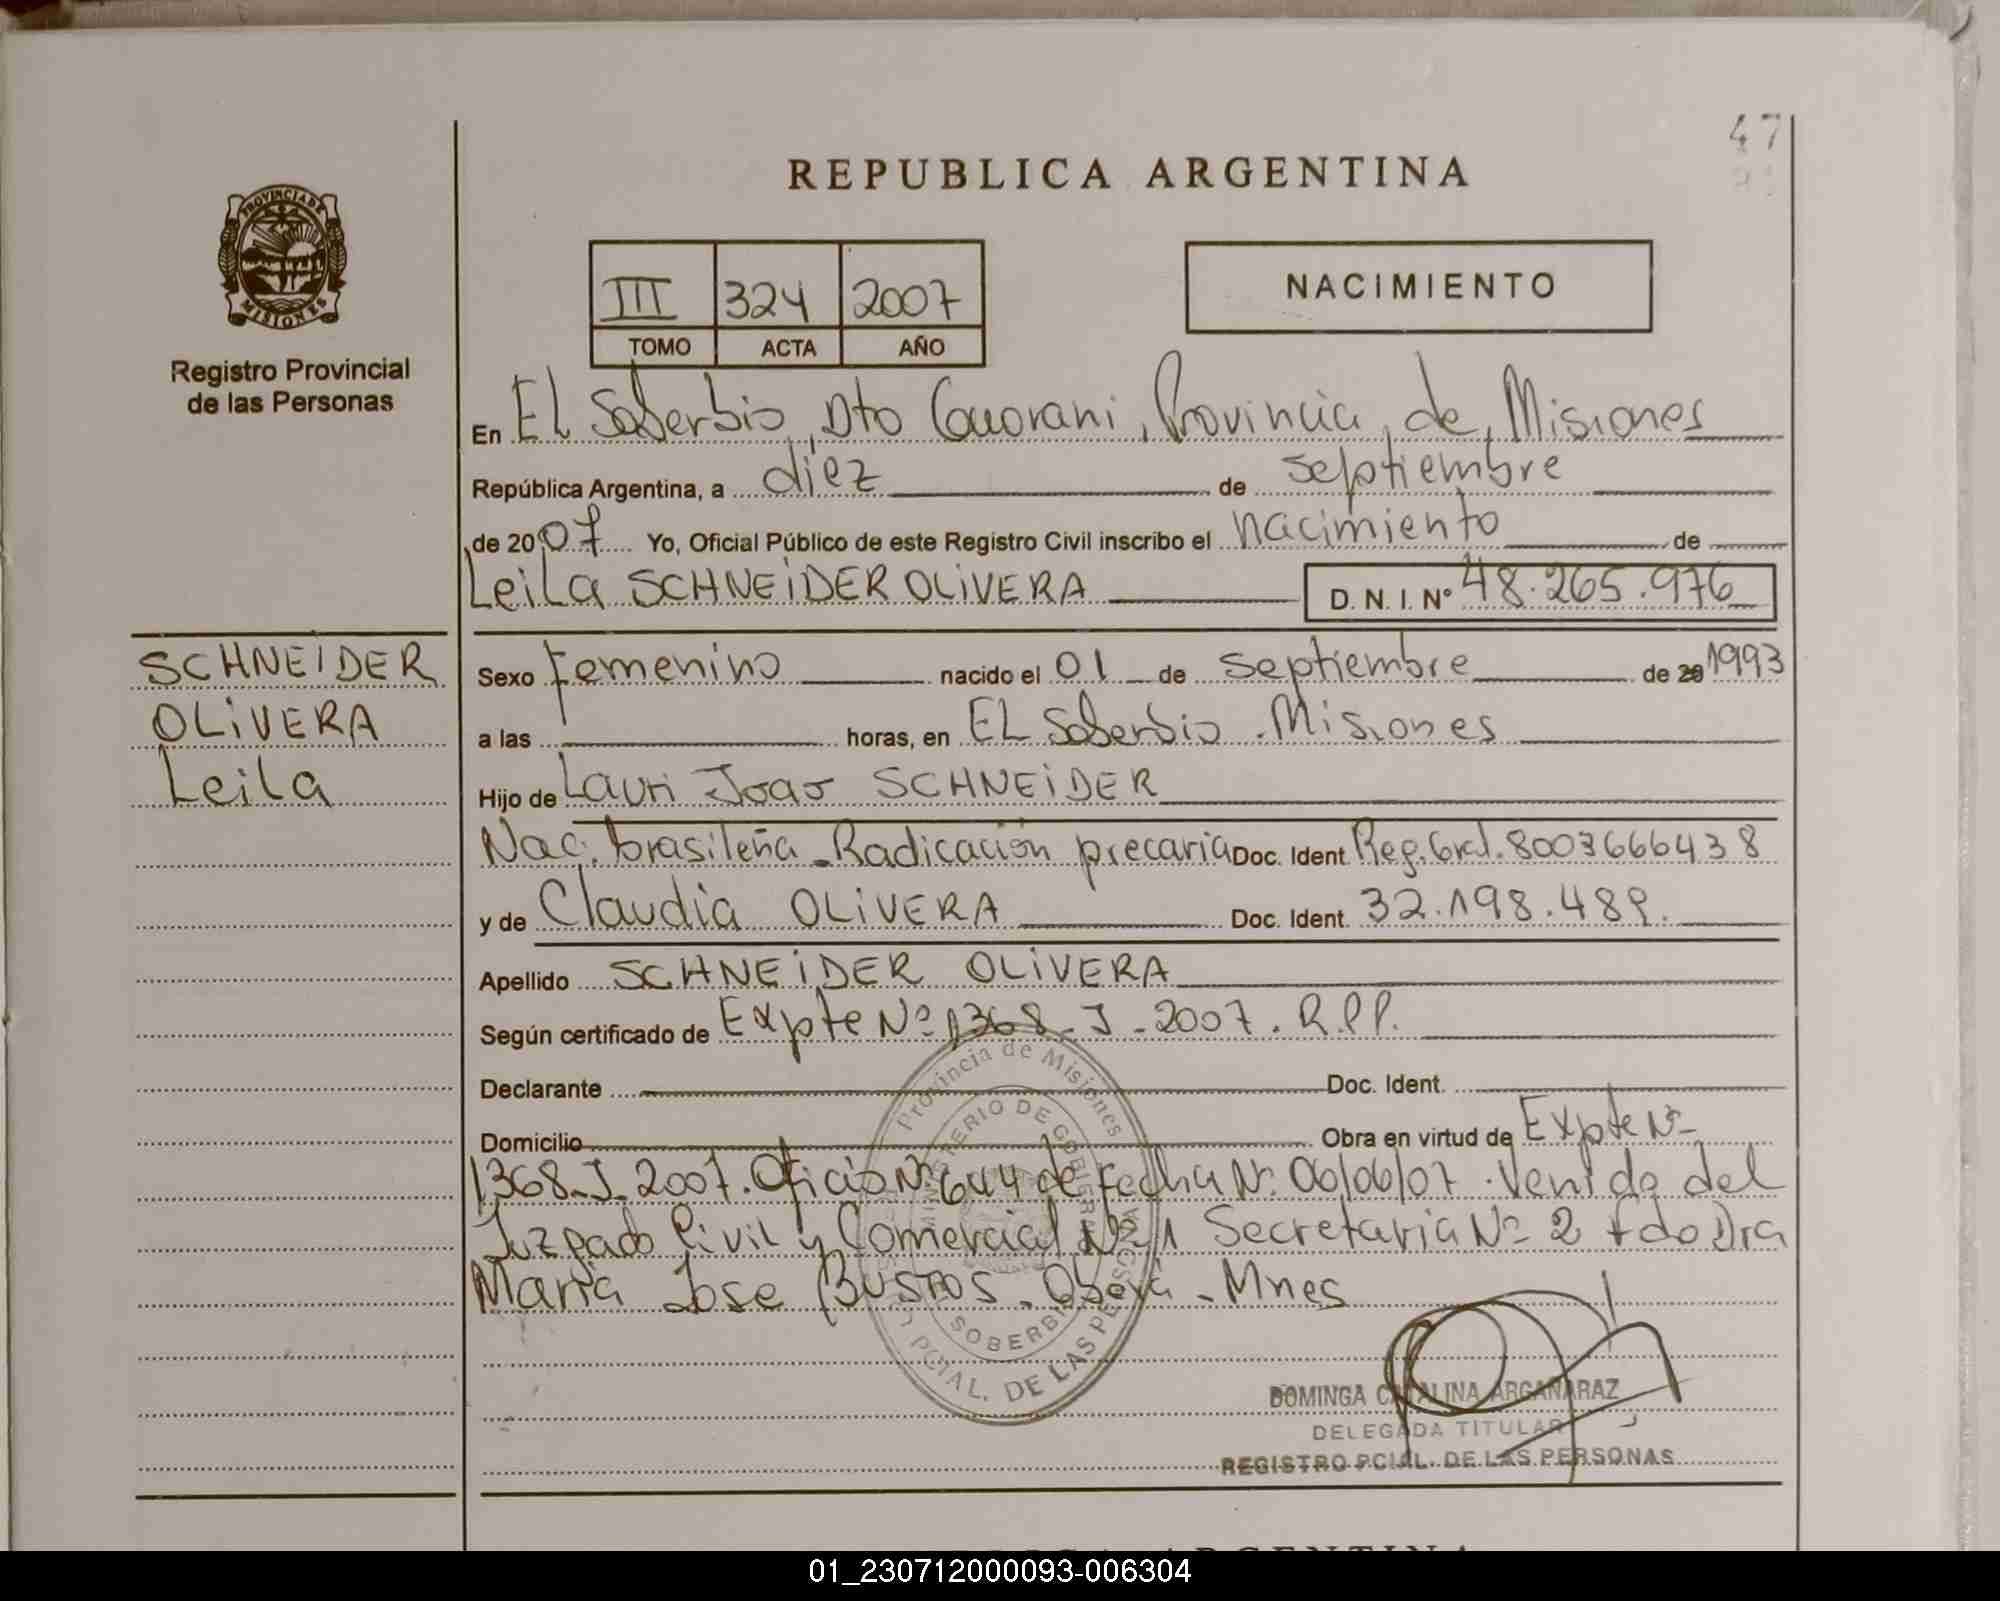 47
REPUBLICA ARGENTINA
PROVINCIA DE
MISIONES
Registro Provincial
de las Personas
III 324 2007
TOMO ACTA AÑO
NACIMIENTO
En EL Soberbio, Dto Guarani, Provincia de Misiones
República Argentina, a diez de septiembre
de 2007 Yo, Oficial Público de este Registro Civil inscribo el nacimiento de
Leila SCHNEIDER OLIVERA D. N. I. Nº 48.265.976
SCHNEIDER
OLIVERA
Leila
Sexo femenino nacido el 01 de septiembre de 20 1993
a las horas, en EL Soberbio . Misiones
Hijo de Lauri Joao SCHNEIDER
Nac. brasileña - Radicación precaria Doc. Ident. Reg. Gral. 8003666438
y de Claudia OLIVERA Doc. Ident. 32.198.489.
Apellido SCHNEIDER OLIVERA
Según certificado de Expte Nº 1368 - J - 2007. R.P.P.
Declarante Doc. Ident.
Domicilio Obra en virtud de Expte Nº
1368-J-2007. Oficio Nº 644 de fecha Nº 06/06/07. Venido del
Juzgado Civil y Comercial Nº 1 Secretaria Nº 2 fdo Dra
Maria Jose BUSTOS - Oberá - Mnes
Provincia de Misiones
MINISTERIO DE GOBIERNO
SOBERBIO
PCIAL. DE LAS PERSONAS
DOMINGA CATALINA ARGAÑARAZ
DELEGADA TITULAR
REGISTRO PCIAL. DE LAS PERSONAS
ARGENTINA
01_230712000093-006304